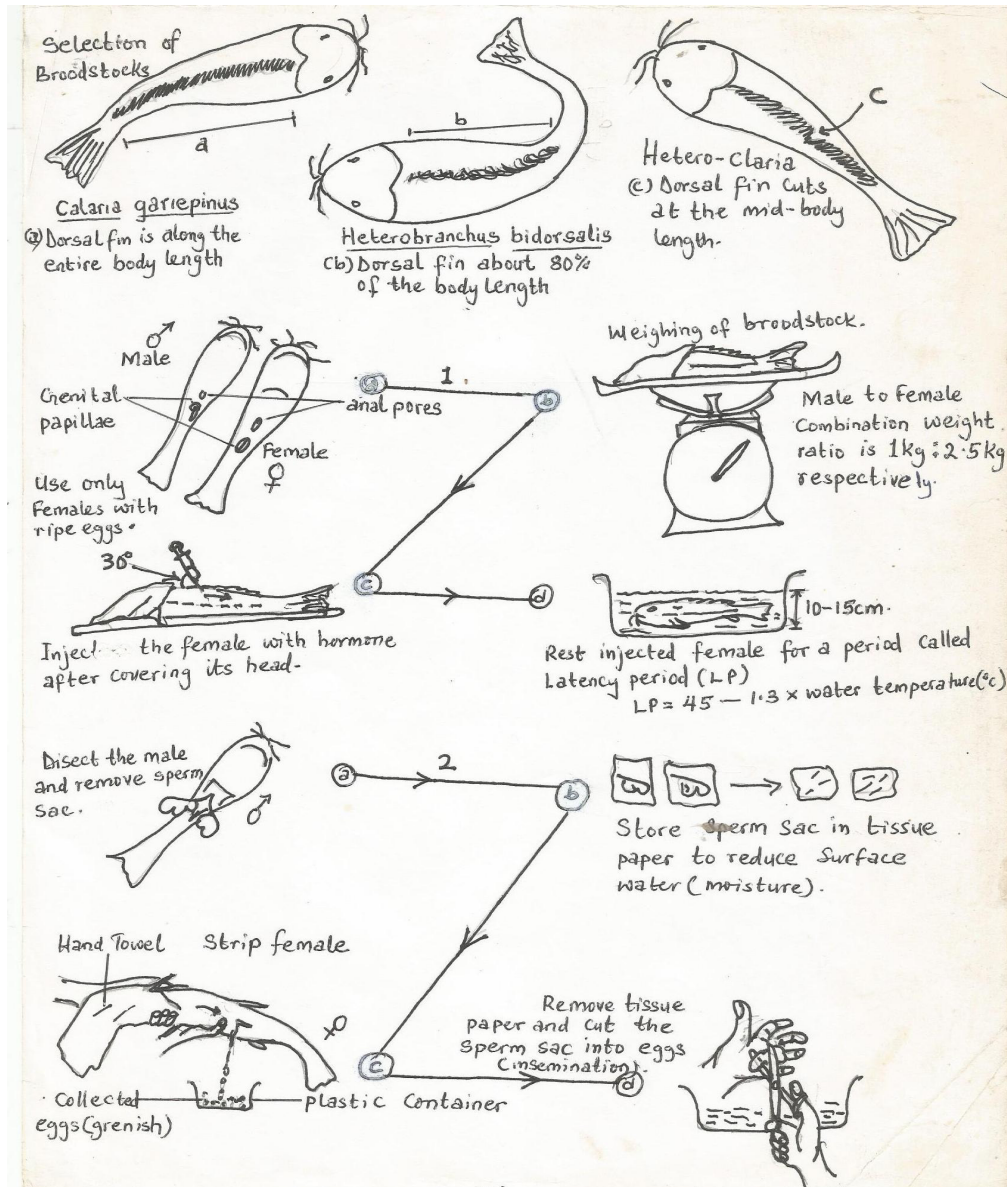 Selection of
Broodstocks
a
Calaria gariepinus
(a) Dorsal fin is along the
entire body length
b
Heterobranchus bidorsalis
(b) Dorsal fin about 80%
of the body length
C
Hetero-Claria
(c) Dorsal fin cuts
at the mid-body
length.
♂
Male
Genital
papillae
anal pores
Female
♀
Use only
Females with
ripe eggs.
a
1
b
Weighing of broodstock.
Male to Female
Combination weight
ratio is 1kg : 2.5kg
respectively.
30°
Inject the female with hormone
after covering its head-
c
d
10-15cm.
Rest injected female for a period called
Latency period (LP)
LP = 45 — 1.3 x water temperature (°c)
Disect the male
and remove sperm
Sac.
♂
a
2
b
Store sperm Sac in tissue
paper to reduce Surface
water (moisture).
Hand Towel
Strip female
♀
Collected
eggs (grenish)
plastic Container
c
Remove tissue
paper and cut the
Sperm sac into eggs
(insemination).
d